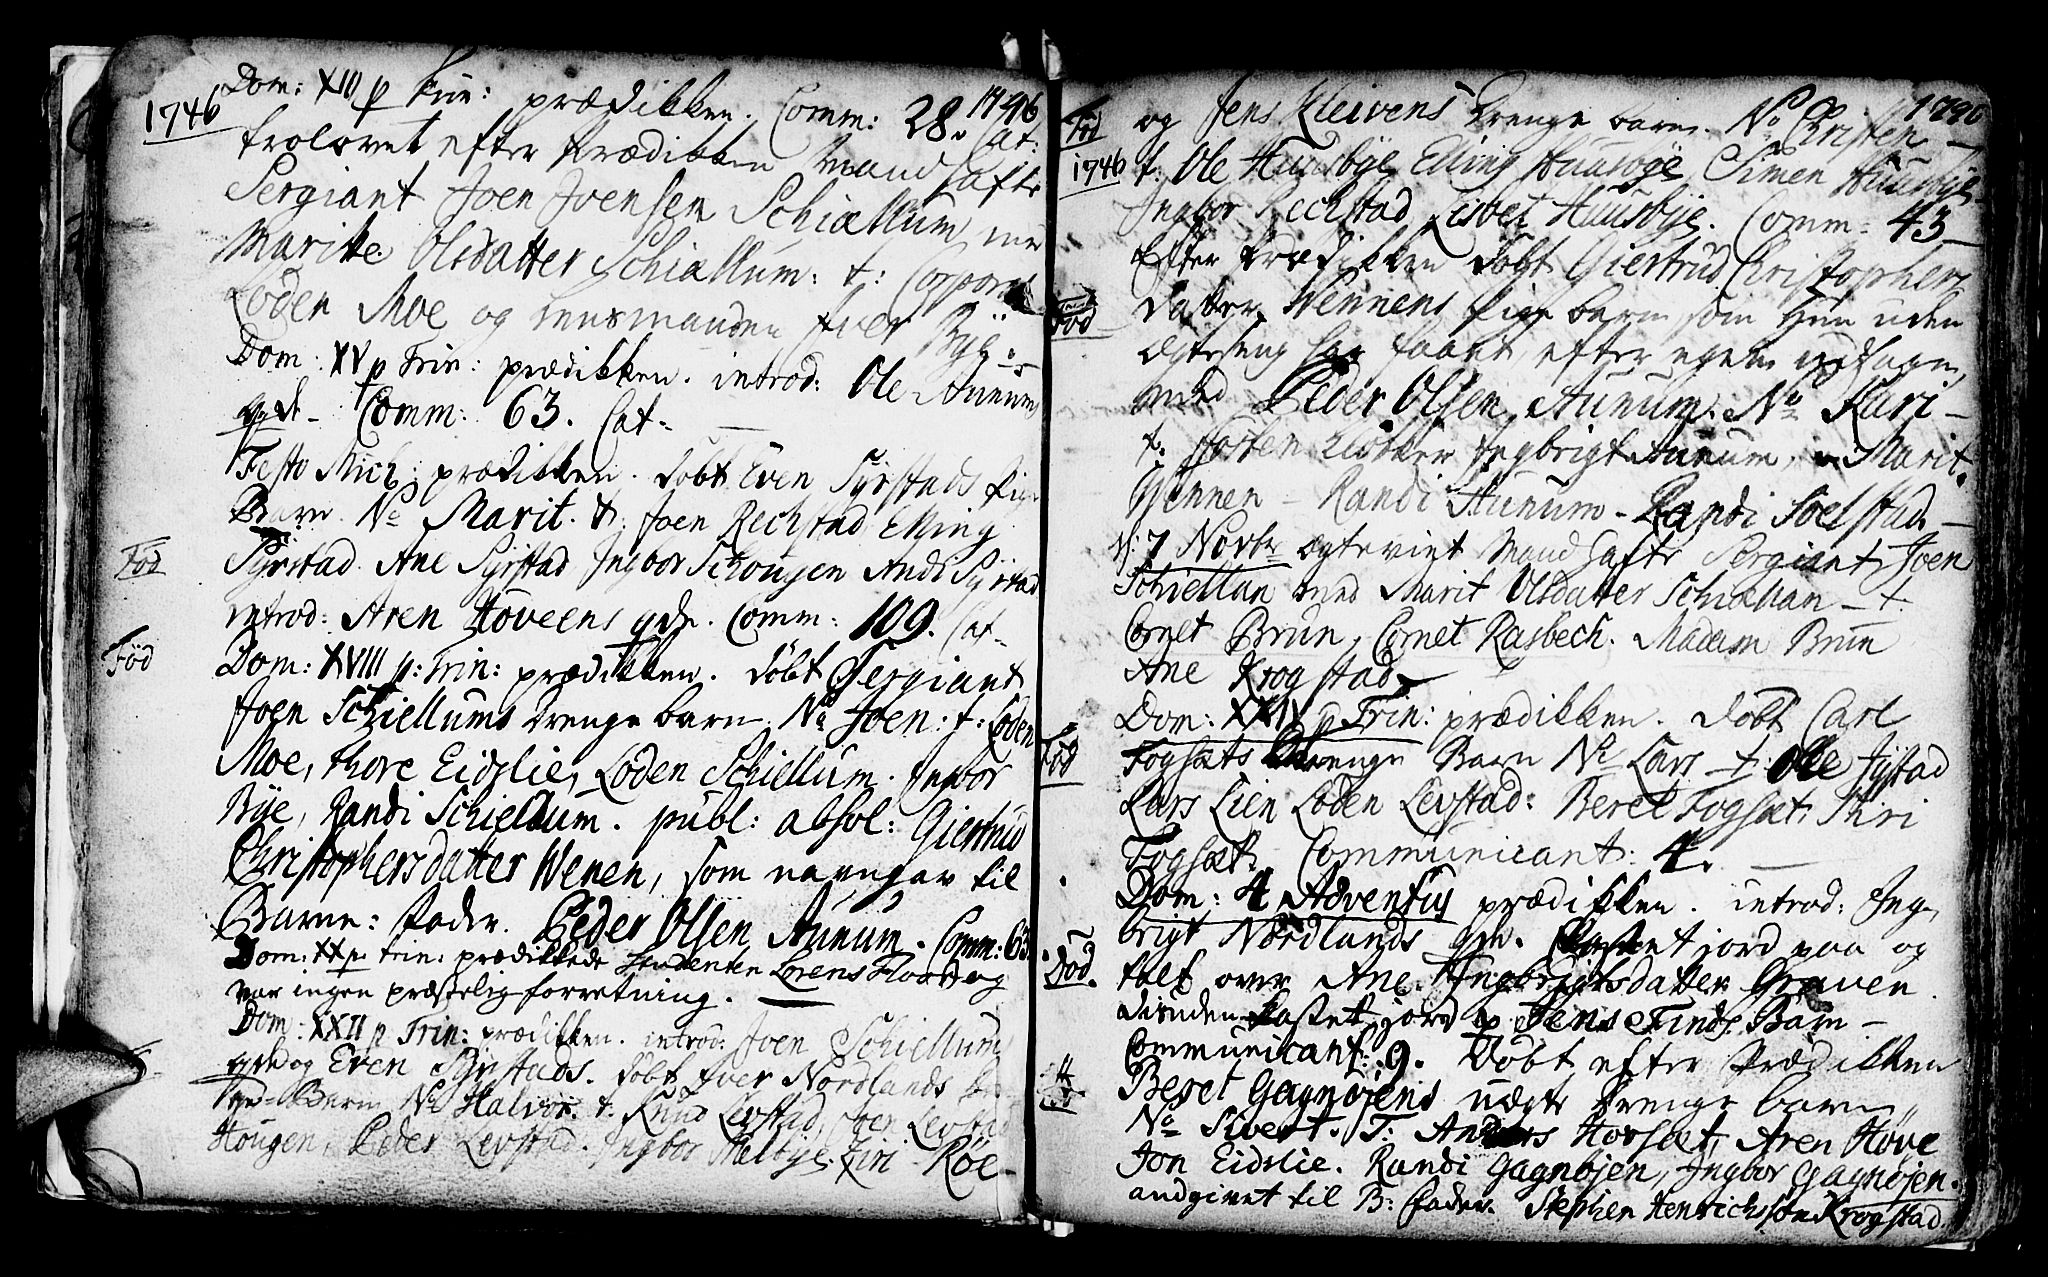 1746
Dom: XIII p Trin: prædikken. Comm: 28. Cat:
1746
trolovet efter Prædikken Mandhafte
Sergiant Joen Joensen Schiællum med
Marite Olsdatter Schiællum: t: Corporal
Loden Moe og Lensmanden Iver Bÿe.
Dom: XV p Trin: prædikken. introd: Ole Aunums
qvde - Comm: 63. Cat-
Festo Mich: prædikken. døbt Even Sÿrstads Pige
Barn. Na Marit. t: Joen Rechstad Elling
Fød
Sÿrstad. Ane Sÿrstad Ingbor Schougen Ane Sÿrstad
introd: Aren Hoveens qde. Comm: 109. Cat-
Fød
Dom: XVIII p: Trin: prædikken. døbt Sergiant
Joen Schiellums drenge barn. Na Joen: t: Loden
Moe, Thore Eidslie, Loden Schiellum. Ingbor
Bÿe, Randi Schiellum. publ: absol: Giertrud
Christophersdatter Wenen, som navngav til
Barne: Fader. Peder Olsen Aunum. Comm: 63
Dom: XX p. Trin: prædikkede Studenten Lorens Floed og
var ingen præstelig forretning.
Dom: XXII p Trin: prædikken. introd: Joen Schiellums
qvde og Even Sÿrstads. døbt Iver Nordlands
Barn Na Halvor. t: Knud Levstad, Joen Levstad
Hougen, Peder Levstad. Ingbor Melbÿe. Ziri - Röe-
Fød
og Jens Kleivens drenge barn. No Christen -
1746
1746
t: Ole Huusbÿe Elling Huusbÿe Simen Huusbÿe
Ingbor Rechstad Lisbet Huusbÿe. Comm: 43-
Efter Prædikken døbt Giertrud Christophers
Fød
datter Wennens Pige barn som Hun uden
Ægteseng har faaet, efter egen udsagn,
med Peder Olsen Aunum. Na Kari -
t: Hosten Klokker Ingbrigt Aunum, Marit
Wennen - Randi Aunum - Randi Soelstad -
7 Novbr ægteviet Mandhafte Sergiant Joen
Schiellan med Marit Olsdatter Schiællan - t.
Cornet Brun, Cornet Rasbech. Madam Brun
Ane Krogstad
Dom: XXIV p Trin: prædikken. døbt Carl
Fød
Fogsæts Drenge Barn Na Lars t: Ole Jÿstad
Lars Lien Loden Levstad: Beret Fogsæt, Thiri
Fogsæt. Communicant: 4.
Dom: 4 Adventus prædikken. introd: Ing-
brigt Nordlands qm. Kastet jord paa og
Død.
talt over Ane Ingbrigtsdatter Graven.
disuden kastet jord p Jens Finds Barn -
Communicant: 9. Døbt efter Prædikken
Beret Gagnöjens uægte drenge barn
Na Sivert. T: Anders Hovsæt, Aren Hove
Jon Eidslie. Randi Gagnöjen, Ingbor Gagnöjen.
andgivet til B: Fader. Stephen Henrichsson Krogstad